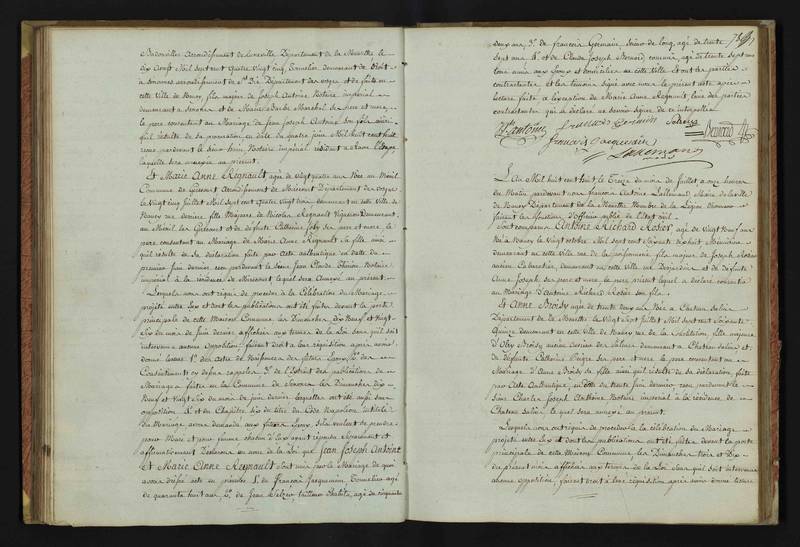 Badonviller arrondissement de Luneville Département de la Meurthe le
dix Août Mil sept cent quatre vingt cinq Tonnelier demeurant de droit
à Senones arrondissement de St Dié Département des Vosges et de fait en
cette Ville de Nancy, fils majeur de Joseph Antoine Notaire impérial
demeurant à Senones et de Marie Barbe Marchal ses pere et mere
le pere consentant au Mariage de Jean Joseph Antoine son fils ainsi
qu'il résulte de sa procuration en date du quatre juin Mil huit cent huit
reçue pardevant le Notaire impérial résidant à
laquelle sera annexée au présent.
Et Marie Anne Regnault agée de vingt quatre ans Née au Ménil
Commune de Gircourt Arrondissement de Mirecourt Département des Vosges
le Vingt cinq juillet Mil sept cent quatre vingt trois demeurant en cette Ville de
Nancy rue derriere fille Majeure de Nicolas Regnault Vigneron demeurant
au Ménil lès Gircourt et de défunte Catherine Joly ses pere et mere, le
pere consentant au Mariage de Marie Anne Regnault sa fille ainsi
qu'il résulte de sa déclaration faite par Acte authentique en date du
premier juin dernier reçu pardevant le Sieur Jean Claude Notaire
impérial à la résidence de Mirecourt lequel sera Annexé au présent.
Lesquels nous ont requis de procéder à la Célébration du Mariage
projetté entre Eux et dont les publications ont été faites devant la porte
principale de cette Maison Commune les Dimanches dix Neuf et Vingt
Six du mois de juin dernier affichées aux termes de la Loi sans qu'il soit
intervenu aucune Opposition, faisant droit à leur réquisition après avoir
donné lecture 1° des actes de Naissances des futurs Epoux, 2° des
Consentements cy dessus rappelés 3° de l'Extrait des publications de
Mariage faites en la Commune de Senones les Dimanches dix
Neuf et Vingt Six du mois de juin dernier lesquelles ont été aussi sans
opposition 4° et du Chapitre Six du titre du Code Napoleon intitulé
du Mariage avons demandé aux futurs Epoux s'ils veulent se prendre
pour Mari et pour femme chacun d'Eux ayant répondu séparément et
affirmativement déclarons au nom de la Loi que Jean Joseph Antoine
Et Marie Anne Regnault Sont unis par le Mariage de quoi
avons dressé acte en présence 1° de François Jacquemin, Tonnelier agé
de quarante huit ans 2° de Jean tailleur d'habits, agé de cinquante
deux ans, 3° de françois Germain, agé de trente
sept ans 4° et de Claude Joseph Bernard agé de trente sept ans
tous amis des Epoux et domiciliés en cette Ville et ont les parties
contractantes et les témoins signé avec nous le présent acte après
lecture faite à l'exception de Marie Anne Regnault l'une des parties
contractantes qui a déclaré ne savoir signer de ce interpellée
JJ Antoine francois Germain Bernard
francois Jacquemin
Lallemand
L'An Mil huit cent huit le Treize du mois de juillet à onze heures
du Matin pardevant nous françois Antoine Lallemand Maire de la ville
de Nancy Département de la Meurthe Membre de la Légion d'honneur
faisant les fonctions d'officier public de l'état civil.
Sont comparus Antoine Richard Robor agé de Vingt Neuf ans
Né à Nancy le vingt octobre Mil sept cent soixante dix huit
demeurant en cette Ville rue de la parfumerie, fils majeur de Joseph Robor
ancien Cabaretier, demeurant en cette Ville et de défunte
Anne Joseph ses pere et mere, le pere présent lequel a déclaré consentir
au Mariage d'Antoine Richard Robor son fils.
Et Anne Broisy agée de trente trois ans Née à Château Salins
Département de la Meurthe le Vingt Sept juillet Mil Sept cent Soixante
Quinze demeurant en cette Ville de Nancy rue de la Constitution, fille majeure
Broisy ancien des Salines demeurant à Chateau Salins et
de défunte Catherine ses pere et mere le pere consentant au
Mariage d'Anne Broisy sa fille ainsi qu'il résulte de sa déclaration faite
par Acte Authentique, en date de trente juin dernier, reçu pardevant le
Sieur Charles Joseph Antoine Notaire impérial à la résidence de
Chateau Salins lequel sera annexé au présent.
Lesquels nous ont requis de procéder à la célébration du Mariage
projetté entre Eux et dont les publications ont été faites devant la porte
principale de cette Maison Commune les Dimanches trois et Dix
du présent mois affichées aux termes de la Loi sans qu'il soit intervenu
aucune opposition, faisant droit à leur réquisition après avoir donné lecture